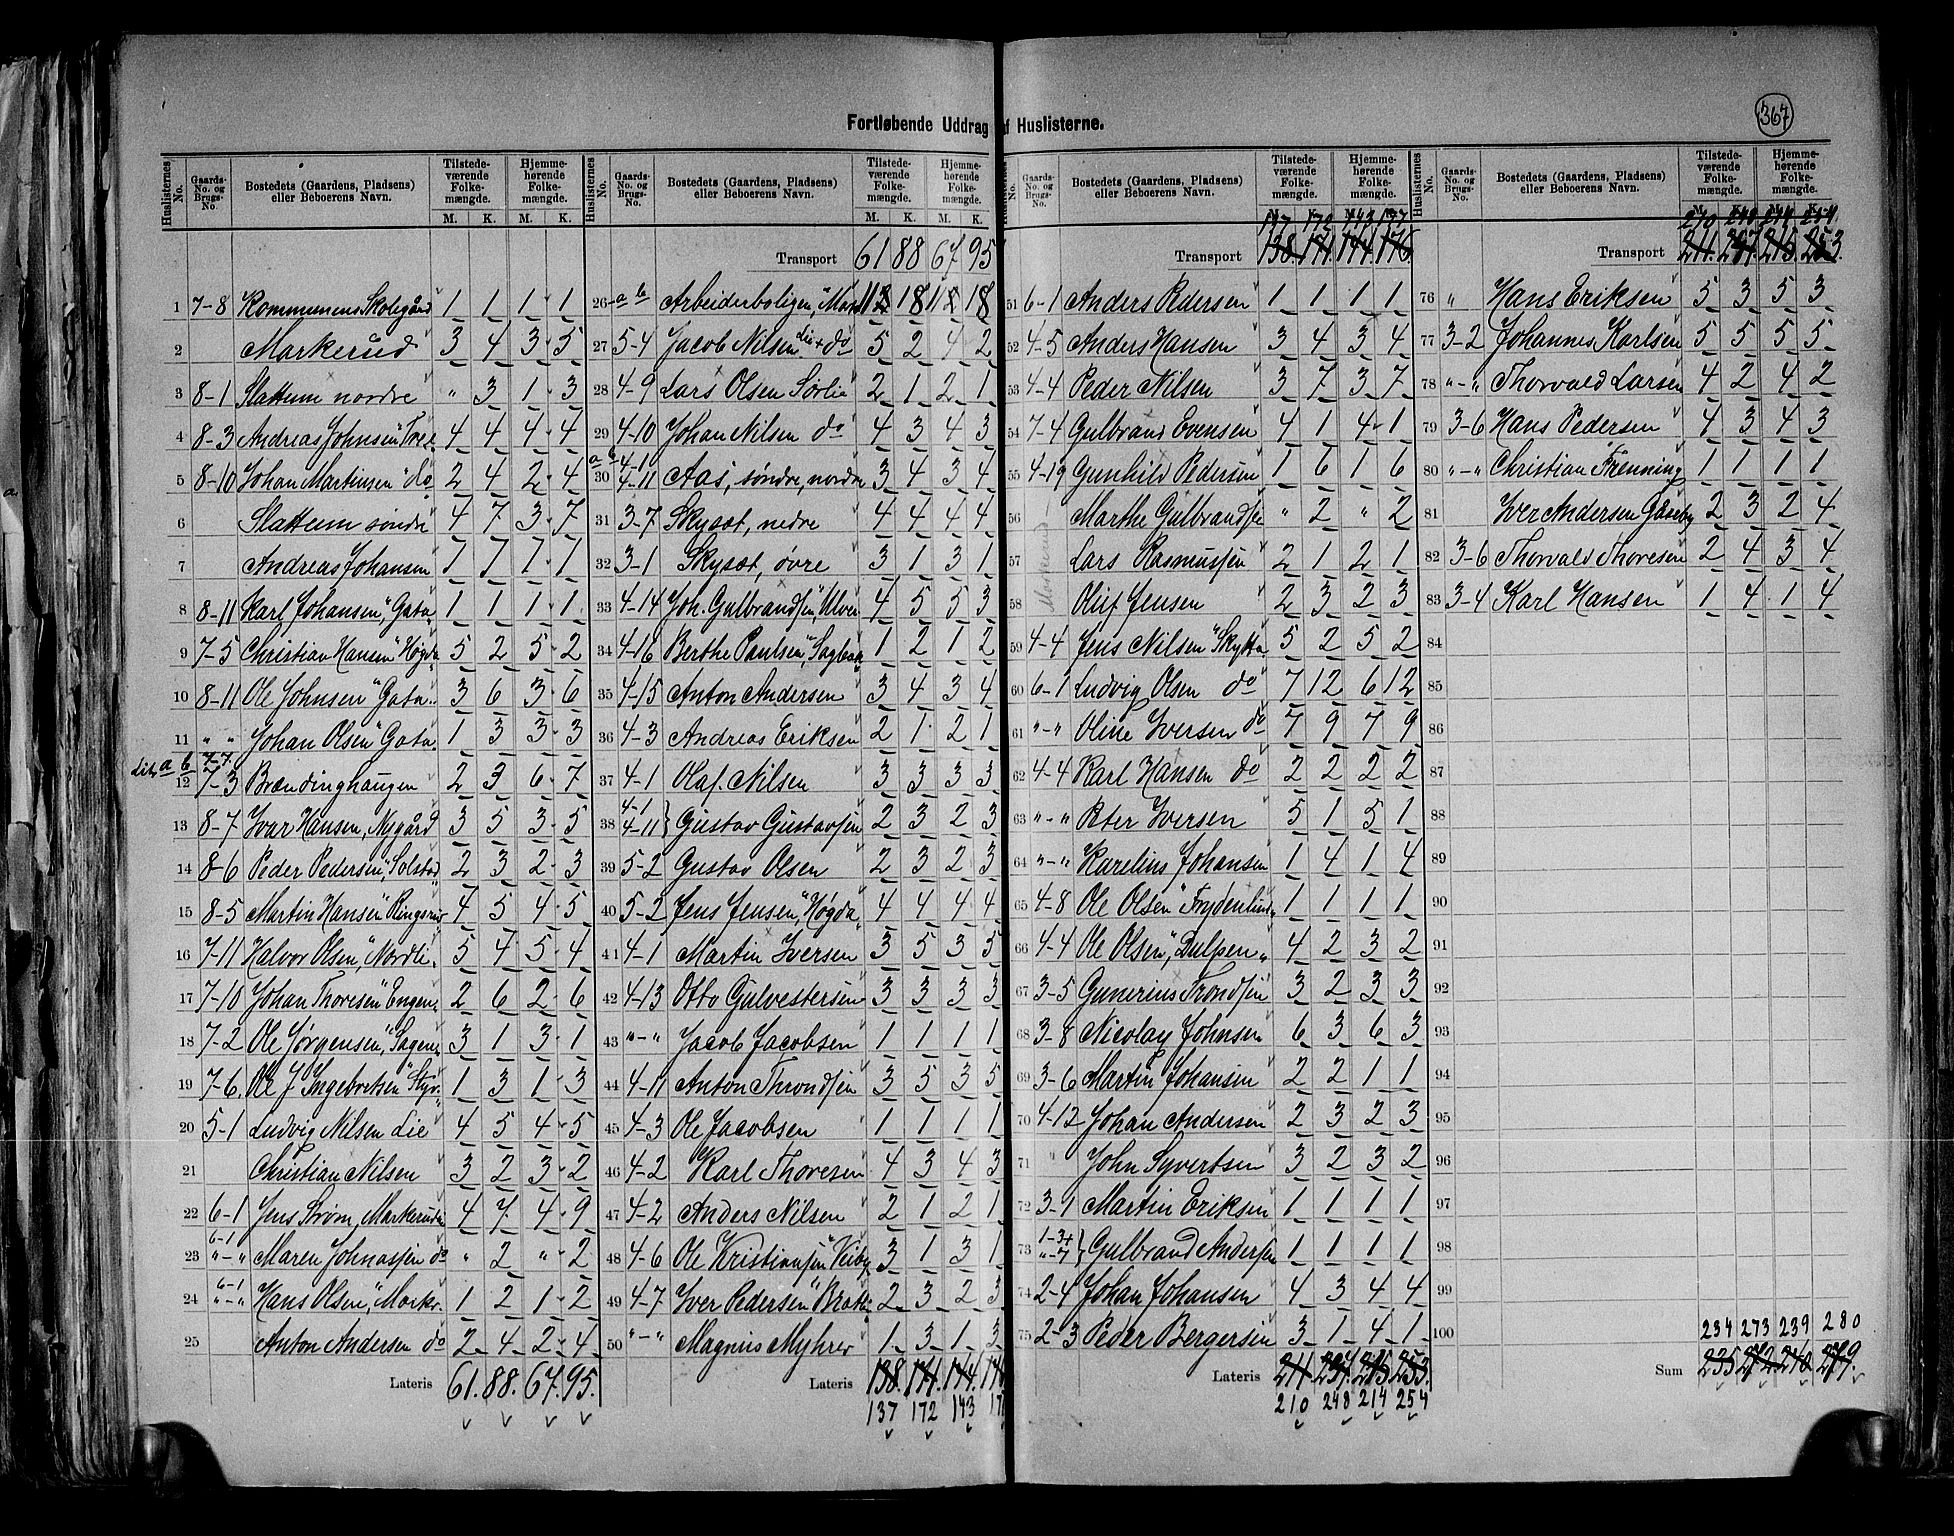 367
Fortløbende Uddrag af Huslisterne.
Huslisternes No. Gaards-No. og Brugs-No. Bostedets (Gaardens, Pladsens) eller Beboerens Navn. Tilstedeværende Folkemængde. M. K. Hjemmehørende Folkemængde. M. K.
1 7-8 Kommunens Skolegård 1 1 1 1
2 Markerud 3 4 3 5
3 8-1 Slattum nordre " 3 1 3
4 8-3 Andreas Johnsen 4 4 4 4
5 8-10 Johan Martinsen do 2 4 2 4
6 Slattum søndre 4 7 3 7
7 Andreas Johansen 1 1 1 1
8 8-11 Karl Johansen, Gata 1 1 1 1
9 7-5 Christian Hansen "Høgda 5 2 5 2
10 8-11 Ole Johnsen "Gata" 3 6 3 6
11 " " Johan Olsen "Gata 1 3 3 3
Lit. a b 7-7
12 7-3 Brændinghaugen 2 3 6 7
13 8-7 Ivar Hansen, Nygård 3 5 3 5
14 8-6 Peder Pedersen, Solstad 2 3 2 3
15 8-5 Martin Hansen "Ringsrud 4 5 4 5
16 7-11 Halvor Olsen, "Nordli" 5 4 5 4
17 7-10 Johan Thoresen "Engen" 2 6 2 6
18 7-2 Ole Jørgensen, "Sagen" 3 1 3 1
19 7-6 Ole J Ingebretsen "Styr" 1 3 1 3
20 5-1 Ludvig Nilsen Lie 4 5 4 5
21 Christian Nilsen 3 2 3 2
22 6-1 Jens Strøm, Markerud 4 7 4 9
23 6-1 "-" Maren Johnassen do " 2 " 2
24 6-1 "-" Hans Olsen, "Marker. 1 2 1 2
25 Anton Andersen do 2 4 2 4
Lateris 61. 88. 67. 95.
Huslisternes No. Gaards-No. og Brugs-No. Bostedets (Gaardens, Pladsens) eller Beboerens Navn. Tilstedeværende Folkemængde. M. K. Hjemmehørende Folkemængde. M. K.
Transport 61 88 67 95
26 a b Arbeiderboligen, 18 18
27 5-4 Jacob Nilsen Lie + do 5 2 4 2
28 4-9 Lars Olsen Sørlie 2 1 2 1
29 4-10 Johan Nilsen do 4 3 4 3
30 a b 4-1 4-11 Aas, søndre, nordre 3 4 3 4
31 3-7 Skysøt, nedre 4 4 4 4
32 3-1 Skysøt, øvre 3 1 3 1
33 4-14 Joh. Gulbrandsen, Ulver 4 5 5 3
34 4-16 Berthe Paulsen, 1 2 1 2
35 4-15 Anton Andersen 3 4 3 4
36 4-3 Andreas Eriksen 2 1 2 1
37 4-1 Olaf Nilsen 3 3 3 3
38 4-1 4-11 } Gustav Gustavsen 2 3 2 3
39 5-2 Gustav Olsen 2 3 2 3
40 5-2 Jens Jensen, "Høgda" 4 4 4 4
41 4-1 Martin Iversen 3 5 3 5
42 4-13 Otto Gulvestersen 3 3 3 3
43 "-" Jacob Jacobsen 1 1 1 1
44 4-11 Anton Throndsen 3 5 3 5
45 4-3 Ole Jacobsen 1 1 1 1
46 4-2 Karl Thoresen 4 3 4 3
47 4-2 Anders Nilsen 2 1 2 1
48 4-6 Ole Kristiansen "Veiby" 3 1 3 1
49 4-7 Iver Pedersen "Bratli" 2 3 2 3
50 "-" Magnus Myhrer 1 3 1 3
Lateris 138. 171. 144.
137 172 143
No. Gaards-No. og Brugs-No. Bostedets (Gaardens, Pladsens) eller Beboerens Navn. Tilstedeværende Folkemængde. M. K. Hjemmehørende Folkemængde. M. K.
137 172 143 177
Transport 138. 171. 144. 176.
51 6-1 Anders Pedersen 1 1 1 1
52 4-5 Anders Hansen 3 4 3 4
53 4-4 Peder Nilsen 3 7 3 7
54 7-4 Gulbrand Evensen 4 1 4 1
55 4-19 Gunhild Pedersen 1 6 1 6
56 Marthe Gulbrandsen " 2 " 2
57 Lars Rasmussen 2 1 2 1
58 Oluf Jensen 2 3 2 3
59 4-4 Jens Nilsen "Skytta 5 2 5 2
60 6-1 Ludvig Olsen do 7 12 6 12
61 "-" Oline Iversen do 7 9 7 9
62 4-4 Karl Hansen do 2 2 2 2
63 "-" Peter Iversen 5 1 5 1
64 "-" Karelius Johansen 1 4 1 4
65 4-8 Ole Olsen "Frydenlund" 1 1 1 1
66 4-4 Ole Olsen, "Dulpen" 4 2 3 2
67 3-5 Gunerius Trondsen 3 2 3 3
68 3-8 Nicolay Johnsen 6 3 6 3
69 3-6 Martin Johansen 2 2 1 1
70 4-12 Johan Andersen 2 3 2 3
71 " John Syvertsen 3 2 3 2
72 3-1 Martin Eriksen 1 1 1 1
73 1-3+ "-7 } Gulbrand Andersen 1 1 1 1
74 2-4 Johan Johansen 4 3 4 4
75 2-3 Peder Bergersen 3 1 4 1
Lateris 211. 247. 215. 253.
210 248 214 254
Huslisternes No. Gaards-No. og Brugs-No. Bostedets (Gaardens, Pladsens) eller Beboerens Navn. Tilstedeværende Folkemængde. M. K. Hjemmehørende Folkemængde. M. K.
210 248 214 254.
Transport 211. 247. 215. 253.
76 " Hans Eriksen 5 3 5 3
77 3-2 Johannes Karlsen 5 5 5 5
78 "-" Thorvald Larsen 4 2 4 2
79 3-6 Hans Pedersen 4 3 4 3
80 "-" Christian Frenning 1 1 1 1
81 Iver Andersen Gåseby 2 3 2 4
82 3-6 Thorvald Thoresen 2 4 3 4
83 3-4 Karl Hansen 1 4 1 4
84
85
86
87
88
89
90
91
92
93
94
95
96
97
98
99
100
234 273 239 280
Sum 235 272. 240 279.